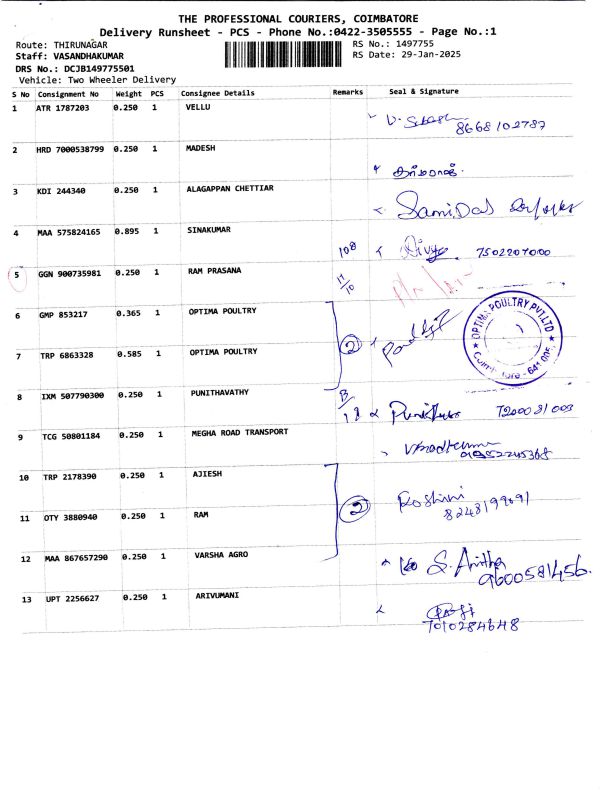 THE PROFESSIONAL COURIERS, COIMBATORE
Delivery Runsheet - PCS - Phone No.:0422-3505555 - Page No.:1
Route: THIRUNAGAR RS No.: 1497755
Staff: VASANDHAKUMAR RS Date: 29-Jan-2025
DRS No.: DCJB149775501
Vehicle: Two Wheeler Delivery
S No Consignment No Weight PCS Consignee Details Remarks Seal & Signature
1 ATR 1787203 0.250 1 VELLU
8668102787
2 HRD 7000538799 0.250 1 MADESH
3 KDI 244340 0.250 1 ALAGAPPAN CHETTIAR
SamiDas
4 MAA 575824165 0.895 1 SINAKUMAR
108 Divya 7502207000
5 GGN 900735981 0.250 1 RAM PRASANA
11/10
6 GMP 853217 0.365 1 OPTIMA POULTRY
OPTIMA POULTRY PVT.LTD
2
7 TRP 6863328 0.585 1 OPTIMA POULTRY
8 IXM 507790300 0.250 1 PUNITHAVATHY
B/18
9 TCG 50801184 0.250 1 MEGHA ROAD TRANSPORT
10 TRP 2178390 0.250 1 AJIESH
Roshini
8248199091
2
11 OTY 3880940 0.250 1 RAM
12 MAA 867657290 0.250 1 VARSHA AGRO
S. Anitha
9600581456.
13 UPT 2256627 0.250 1 ARIVUMANI
7010284648